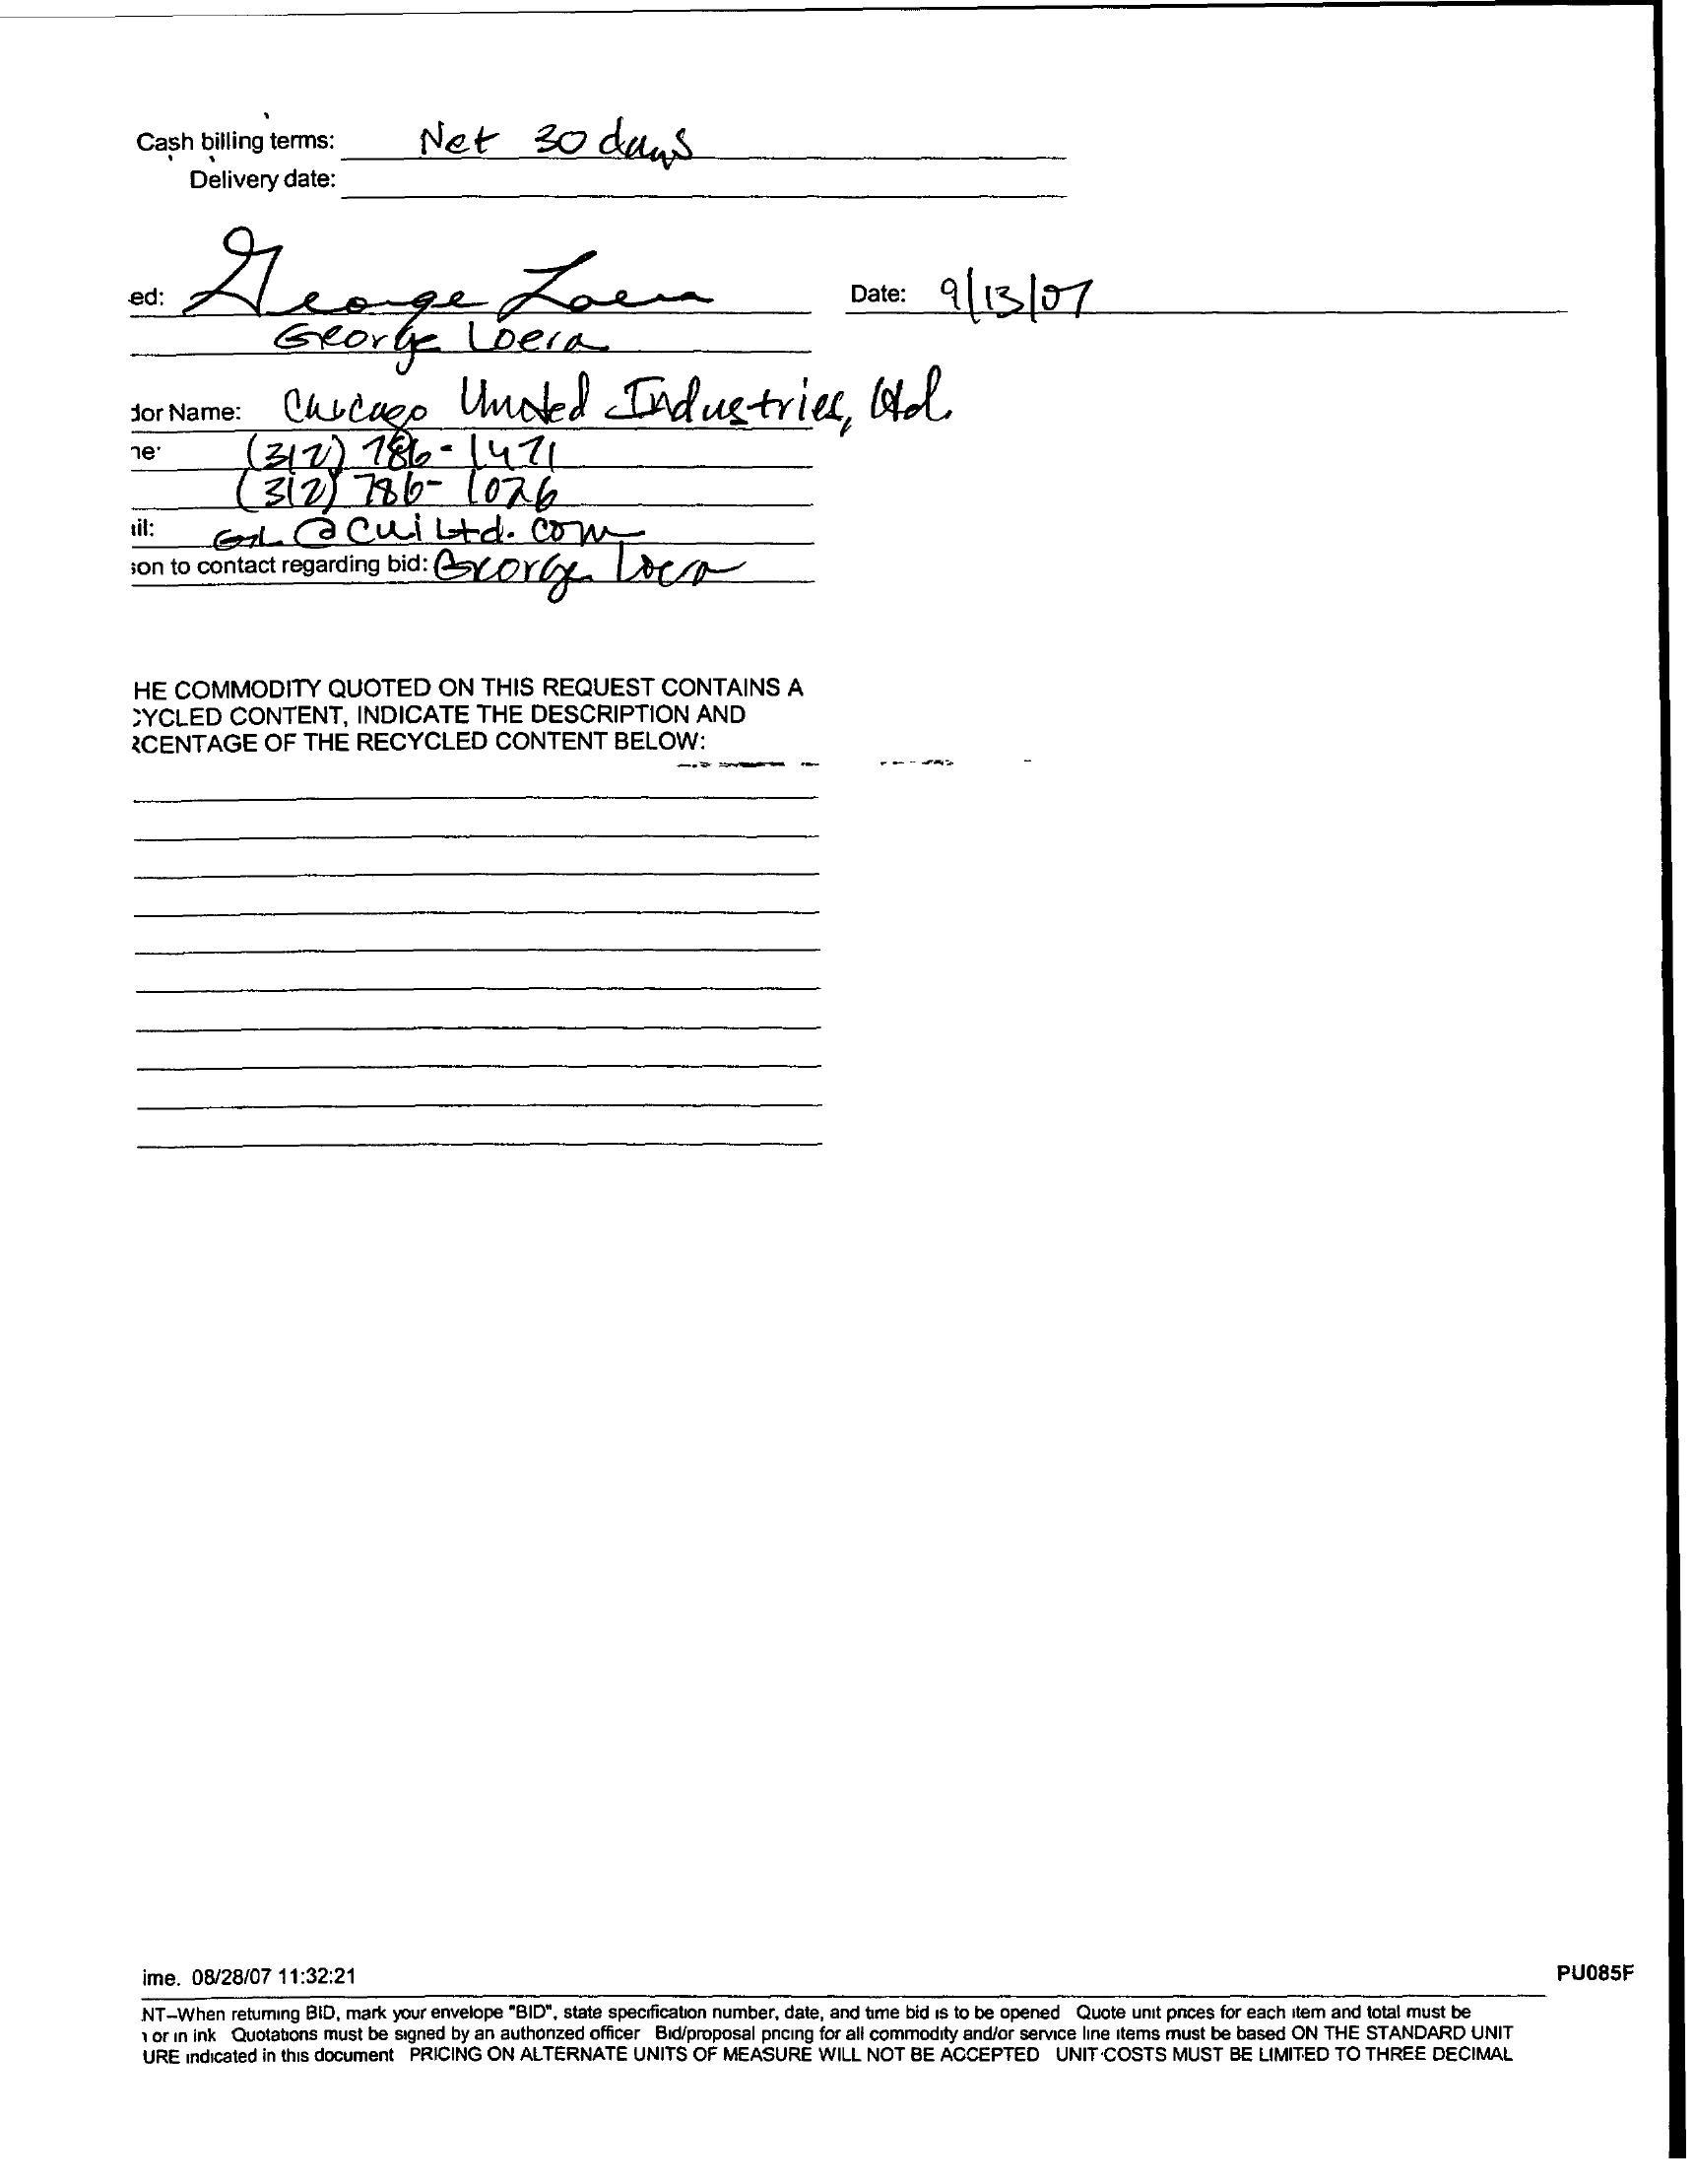 Cash billing terms: Net 30 days
Delivery date:
ed: George Loera Date: 9/13/07
George Loera
dor Name: Chicago United Industries, Ltd.
ne: (312) 786-1471
(312) 786-1026
ail: GL@CuiLtd.com
son to contact regarding bid: George Loera
HE COMMODITY QUOTED ON THIS REQUEST CONTAINS A
CYCLED CONTENT, INDICATE THE DESCRIPTION AND
RCENTAGE OF THE RECYCLED CONTENT BELOW:
ime. 08/28/07 11:32:21 PU085F
NT–When returning BID, mark your envelope "BID", state specification number, date, and time bid is to be opened Quote unit prices for each item and total must be
or in ink Quotations must be signed by an authorized officer Bid/proposal pricing for all commodity and/or service line items must be based ON THE STANDARD UNIT
URE indicated in this document PRICING ON ALTERNATE UNITS OF MEASURE WILL NOT BE ACCEPTED UNIT COSTS MUST BE LIMITED TO THREE DECIMAL